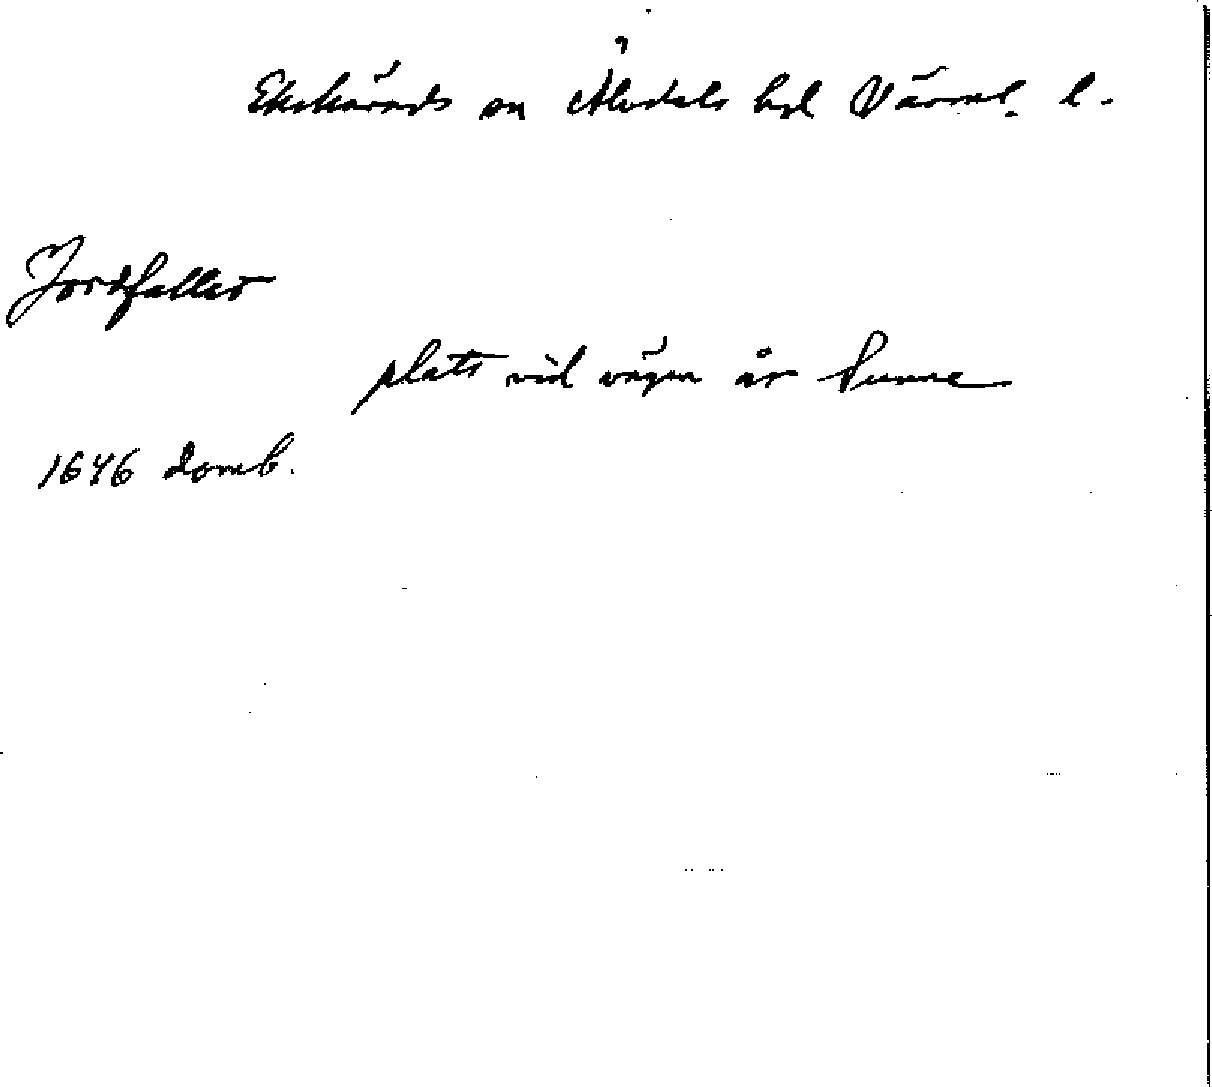 Ekshärads sn Älvdals hd Värml. l.
Jordfallet
plats vid vägen åt Sunne
1646 domb.